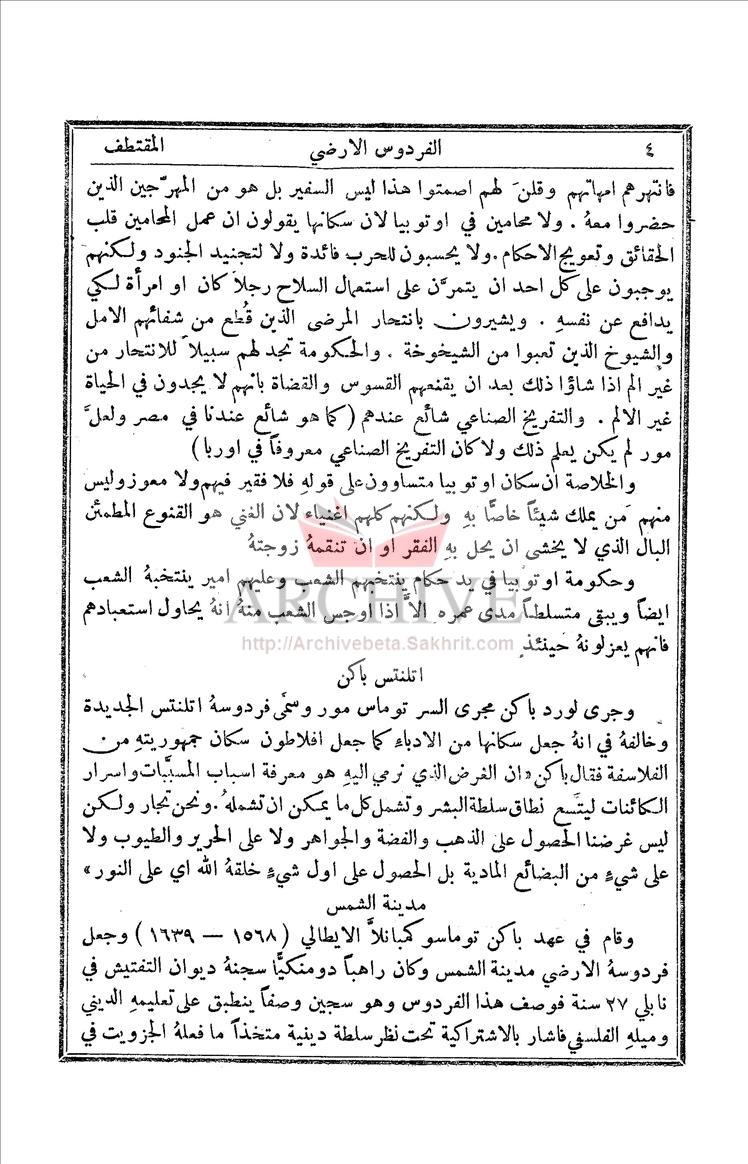 ٤ الفردوس الارضي المقتطف
فانتهرهم امهاتهم وقلنَ لهم اصمتوا هذا ليس السفير بل هو من المهرّجين الذين
حضروا معهُ . ولا محامين في اوتوبيا لان سكانها يقولون ان عمل المحامين قلب
الحقائق وتعويج الاحكام . ولا يحسبون للحرب فائدة ولا لتجنيد الجنود ولكنهم
يوجبون على كل احد ان يتمرَّن على استعمال السلاح رجلاً كان او امرأة لكي
يدافع عن نفسهِ . ويشيرون بانتحار المرضى الذين قُطع من شفائهم الامل
والشيوخ الذين تعبوا من الشيخوخة . والحكومة تجد لهم سبيلاً للانتحار من
غير الم اذا شاؤا ذلك بعد ان يقنعهم القسوس والقضاة بانهم لا يجدون في الحياة
غير الالم . والتفريخ الصناعي شائع عندهم (كما هو شائع عندنا في مصر ولعلَّ
مور لم يكن يعلم ذلك ولا كان التفريخ الصناعي معروفاً في اوربا)
والخلاصة ان سكان اوتوبيا متساوون على قولهِ فلا فقير فيهم ولا معوز وليس
منهم مَن يملك شيئاً خاصًّا بهِ ولكنهم كلهم اغنياء لان الغني هو القنوع المطمئن
البال الذي لا يخشى ان يحل بهِ الفقر او ان تنقمهُ زوجتهُ
وحكومة اوتوبيا في يد حكام ينتخبهم الشعب وعليهم امير ينتخبهُ الشعب
ايضاً ويبقى متسلطاً مدى عمره الاَّ اذا اوجس الشعب منهُ انهُ يحاول استعبادهم
فانهم يعزلونهُ حينئذٍ
ARCHIVE
http://Archivebeta.Sakhrit.com
اتلنتس باكن
وجرى لورد باكن مجرى السر توماس مور وسمّى فردوسهُ اتلنتس الجديدة
وخالفهُ في انهُ جعل سكانها من الادباء كما جعل افلاطون سكان جمهوريتهِ من
الفلاسفة فقال باكن «ان الغرض الذي نرمي اليهِ هو معرفة اسباب المسبَّبات واسرار
الكائنات ليتَّسع نطاق سلطة البشر وتشمل كل ما يمكن ان تشملهُ . ونحن تجار ولكن
ليس غرضنا الحصول على الذهب والفضة والجواهر ولا على الحرير والطيوب ولا
على شيءٍ من البضائع المادية بل الحصول على اول شيءٍ خلقهُ الله اي على النور»
مدينة الشمس
وقام في عهد باكن توماسو كمبانلاَّ الايطالي (١٥٦٨ — ١٦٣٩) وجعل
فردوسهُ الارضي مدينة الشمس وكان راهباً دومنكيًّا سجنهُ ديوان التفتيش في
نابلي ٢٧ سنة فوصف هذا الفردوس وهو سجين وصفاً ينطبق على تعليمهِ الديني
وميلهِ الفلسفي فاشار بالاشتراكية تحت نظر سلطة دينية متخذاً ما فعلهُ الجزويت في